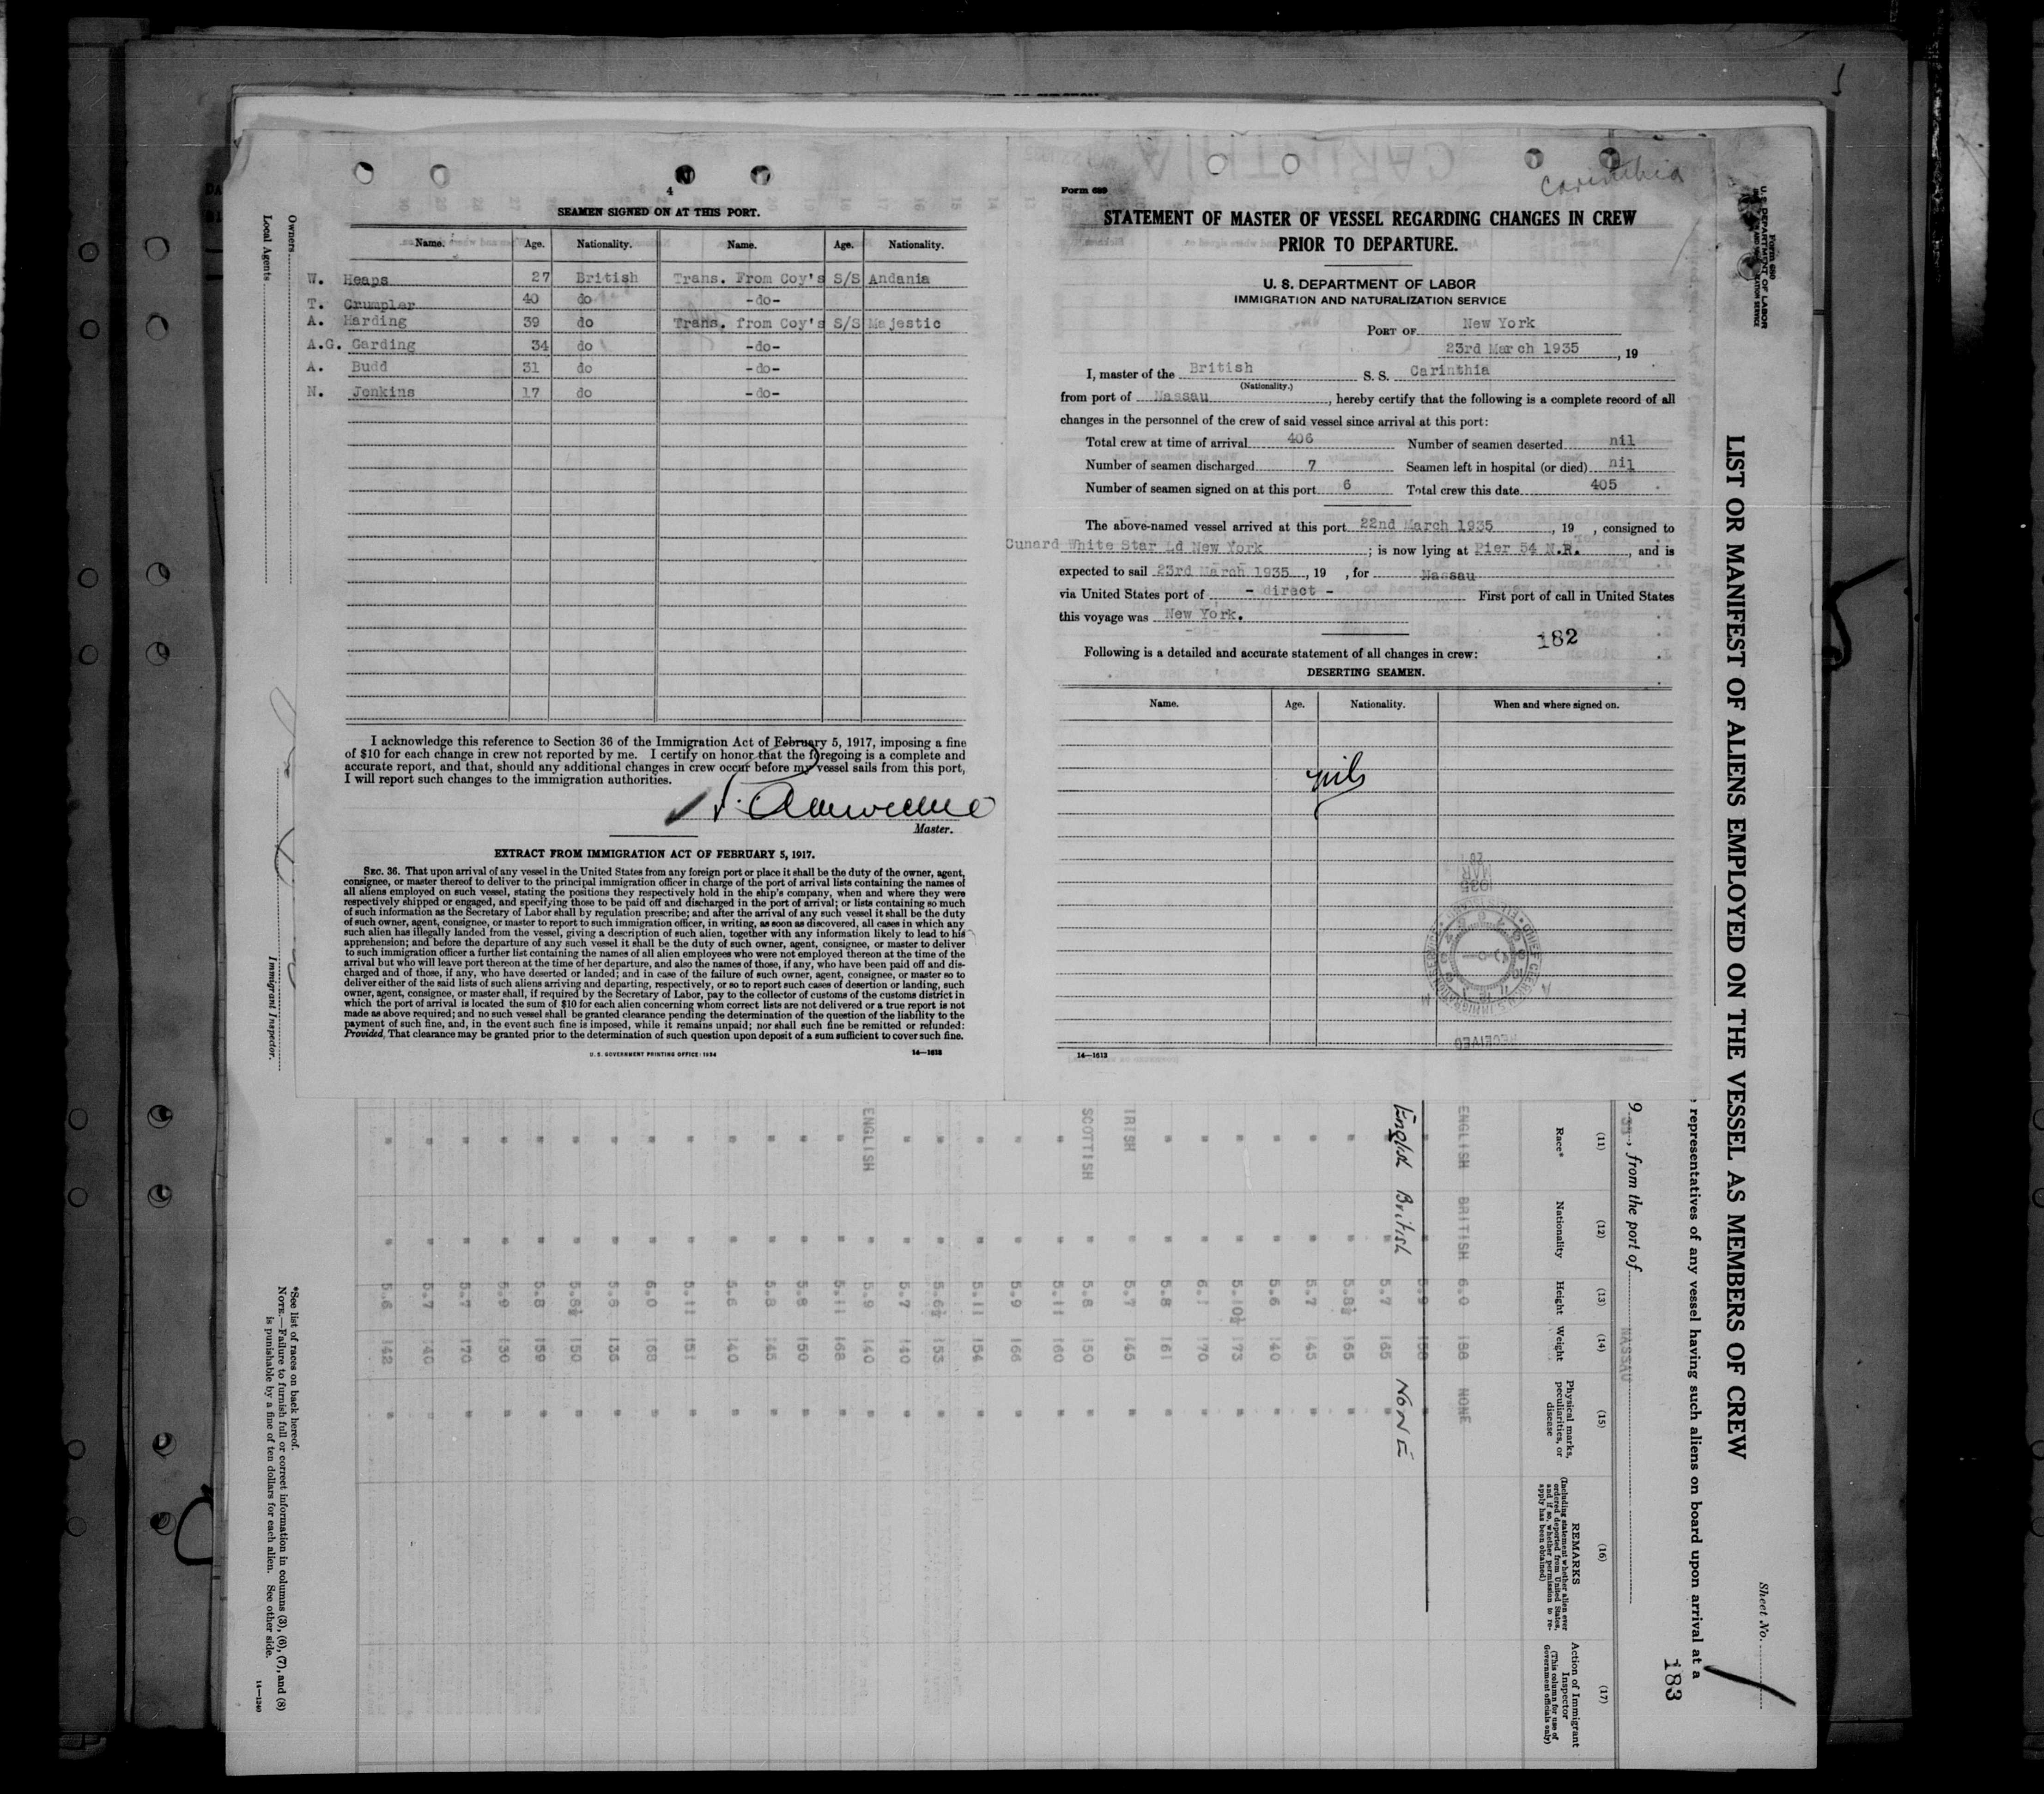 4
SEAMEN SIGNED ON AT THIS PORT.
Name. Age. Nationality. Name. Age. Nationality.
W. Heaps 27 British Trans. From Coy's S/S Andania
T. Crumpler 40 do -do-
A. Harding 39 do Trans. from Coy's S/S Majestic
A.G. Garding 34 do -do-
A. Budd 31 do -do-
N. Jenkins 17 do -do-
I acknowledge this reference to Section 36 of the Immigration Act of February 5, 1917, imposing a fine
of $10 for each change in crew not reported by me. I certify on honor that the foregoing is a complete and
accurate report, and that, should any additional changes in crew occur before my vessel sails from this port,
I will report such changes to the immigration authorities.
Master.
EXTRACT FROM IMMIGRATION ACT OF FEBRUARY 5, 1917.
SEC. 36. That upon arrival of any vessel in the United States from any foreign port or place it shall be the duty of the owner, agent,
consignee, or master thereof to deliver to the principal immigration officer in charge of the port of arrival lists containing the names of
all aliens employed on such vessel, stating the positions they respectively hold in the ship's company, when and where they were
respectively shipped or engaged, and specifying those to be paid off and discharged in the port of arrival; or lists containing so much
of such information as the Secretary of Labor shall by regulation prescribe; and after the arrival of any such vessel it shall be the duty
of such owner, agent, consignee, or master to report to such immigration officer, in writing, as soon as discovered, all cases in which any
such alien has illegally landed from the vessel, giving a description of such alien, together with any information likely to lead to his
apprehension; and before the departure of any such vessel it shall be the duty of such owner, agent, consignee, or master to deliver
to such immigration officer a further list containing the names of all alien employees who were not employed thereon at the time of the
arrival but who will leave port thereon at the time of her departure, and also the names of those, if any, who have been paid off and dis-
charged and of those, if any, who have deserted or landed; and in case of the failure of such owner, agent, consignee, or master so to
deliver either of the said lists of such aliens arriving and departing, respectively, or so to report such cases of desertion or landing, such
owner, agent, consignee, or master shall, if required by the Secretary of Labor, pay to the collector of customs of the customs district in
which the port of arrival is located the sum of $10 for each alien concerning whom correct lists are not delivered or a true report is not
made as above required; and no such vessel shall be granted clearance pending the determination of the question of the liability to the
payment of such fine, and, in the event such fine is imposed, while it remains unpaid; nor shall such fine be remitted or refunded:
Provided, That clearance may be granted prior to the determination of such question upon deposit of a sum sufficient to cover such fine.
U.S. GOVERNMENT PRINTING OFFICE: 1934 14—1613
Carinthia
Form 689
STATEMENT OF MASTER OF VESSEL REGARDING CHANGES IN CREW
PRIOR TO DEPARTURE.
U. S. DEPARTMENT OF LABOR
IMMIGRATION AND NATURALIZATION SERVICE
PORT OF New York
23rd March 1935, 19
I, master of the British S. S. Carinthia
(Nationality.)
from port of Nassau, hereby certify that the following is a complete record of all
changes in the personnel of the crew of said vessel since arrival at this port:
Total crew at time of arrival 406 Number of seamen deserted nil
Number of seamen discharged 7 Seamen left in hospital (or died) nil
Number of seamen signed on at this port 6 Total crew this date 405
The above-named vessel arrived at this port 22nd March 1935, 19 , consigned to
Cunard White Star Ld New York ; is now lying at Pier 54 N.R., and is
expected to sail 23rd March 1935, 19 , for Nassau
via United States port of - direct - First port of call in United States
this voyage was New York.
182
Following is a detailed and accurate statement of all changes in crew:
DESERTING SEAMEN.
Name. Age. Nationality. When and where signed on.
nil
14—1613
Form 680
U. S. DEPARTMENT OF LABOR
LIST OR MANIFEST OF ALIENS EMPLOYED ON THE VESSEL AS MEMBERS OF CREW
Sheet No.
representatives of any vessel having such aliens on board upon arrival at a
183
9 35, from the port of NASSAU
(11) (12) (13) (14) (15) (16) (17)
Race* Nationality Height Weight Physical marks, peculiarities, or disease
REMARKS
(Including statement whether alien ever ordered deported from United States, and if so, whether permission to re-apply has been obtained)
Action of Immigrant Inspector
(This column for use of Government officials only)
ENGLISH BRITISH 6.0 188 NONE
" " 5.9 158 "
English British NONE
" " 5.7 165 "
" " 5.8½ 165 "
" " 5.7 145 "
" " 5.6 140 "
" " 5.10½ 173 "
" " 6.1 170 "
" " 5.8 161 "
IRISH " 5.7 145 "
SCOTTISH " 5.8 150 "
" " 5.11 160 "
" " 5.9 166 "
" " 5.11 154 "
" " 5.6½ 153 "
" " 5.7 140 "
ENGLISH " 5.9 140 "
" " 5.11 168 "
" " 5.8 150 "
" " 5.8 145 "
" " 5.6 140 "
" " 5.11 151 "
" " 6.0 168 "
" " 5.8 136 "
" " 5.8½ 150 "
" " 5.8 159 "
" " 5.9 130 "
" " 5.7 170 "
" " 5.7 140 "
" " 5.6 142 "
Owners
Local Agents
Immigrant Inspector.
*See list of races on back hereof.
NOTE.—Failure to furnish full or correct information in columns (3), (6), (7), and (8)
is punishable by a fine of ten dollars for each alien. See other side.
14—1240